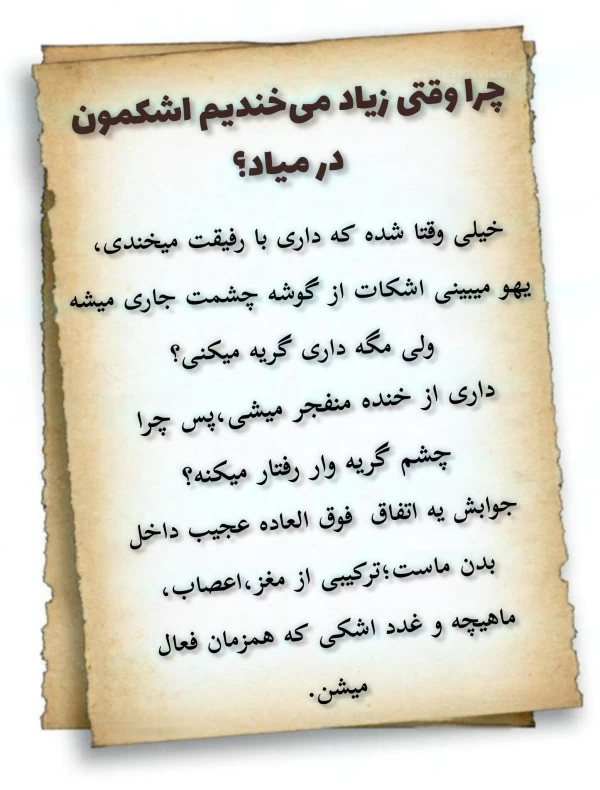 چرا وقتی زیاد می‌خندیم اشکمون
در میاد؟
خیلی وقتا شده که داری با رفیقت میخندی،
یهو میبینی اشکات از گوشه چشمت جاری میشه
ولی مگه داری گریه میکنی؟
داری از خنده منفجر میشی،پس چرا
چشم گریه وار رفتار میکنه؟
جوابش یه اتفاق فوق العاده عجیب داخل
بدن ماست؛ترکیبی از مغز،اعصاب،
ماهیچه و غدد اشکی که همزمان فعال
میشن.